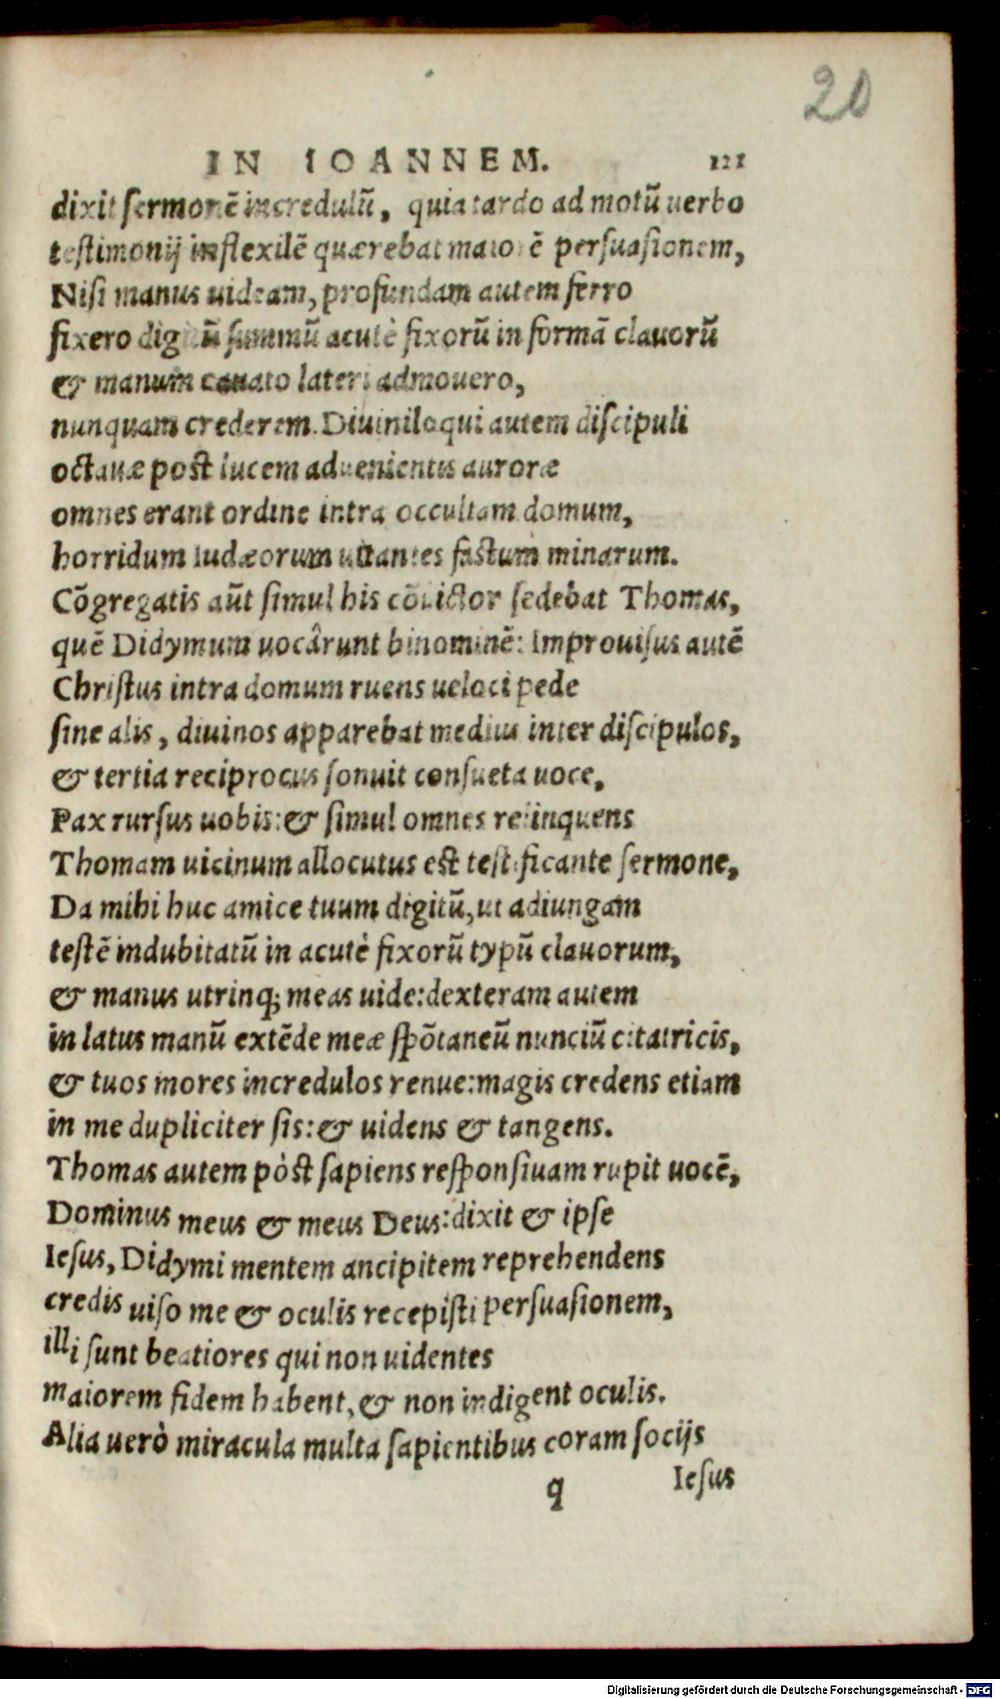 20
IN IOANNEM. 121
dixit sermonē incredulū, quia tardo ad motū uerbo
testimonij inflexilē quærebat maiorē persuasionem,
Nisi manus uideam, profundam autem ferro
fixero digitū summū acutè fixorū in formā clauorū
& manum cauato lateri admouero,
nunquam crederem. Diuiniloqui autem discipuli
octauæ post lucem aduenientis auroræ
omnes erant ordine intra occultam domum,
horridum Iudæorum uitantes fastum minarum.
Cōgregatis aūt simul his cōuictor sedebat Thomas,
quē Didymum uocârunt binominē: Improuisus autē
Christus intra domum ruens ueloci pede
sine alis, diuinos apparebat medius inter discipulos,
& tertia reciprocus sonuit consueta uoce,
Pax rursus uobis: & simul omnes relinquens
Thomam uicinum allocutus est testificante sermone,
Da mihi huc amice tuum digitū, ut adiungam
testē indubitatū in acutè fixorū typū clauorum,
& manus utrinq; meas uide: dexteram autem
in latus manū extēde meæ spōtaneū nunciū citatricis,
& tuos mores incredulos renue: magis credens etiam
in me dupliciter sis: & uidens & tangens.
Thomas autem pòst sapiens responsiuam rupit uocē,
Dominus meus & meus Deus: dixit & ipse
Iesus, Didymi mentem ancipitem reprehendens
credis uiso me & oculis recepisti persuasionem,
illi sunt beatiores qui non uidentes
maiorem fidem habent, & non indigent oculis.
Alia uerò miracula multa sapientibus coram socijs
q Iesus
Digitalisierung gefördert durch die Deutsche Forschungsgemeinschaft - DFG